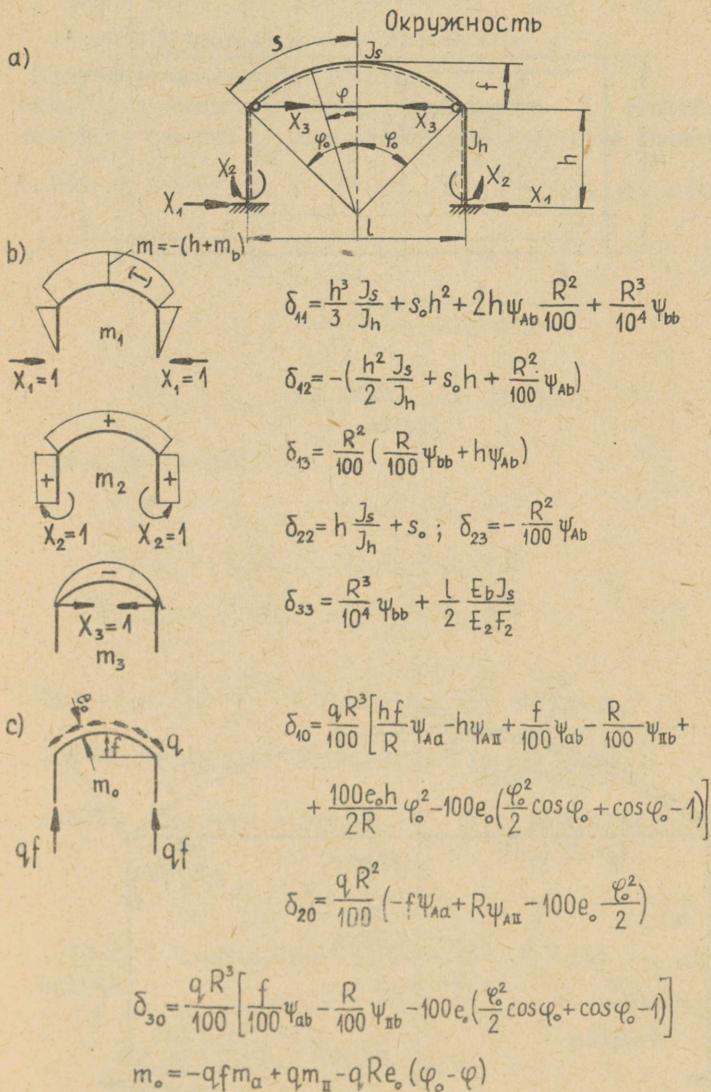 Окружность
a)
s
J_s
f
φ
X_3 X_3
φ_o φ_o
J_h
h
X_2 X_2
X_1 X_1
l
b)
m=-(h+m_b)
m_1
X_1=1 X_1=1
δ_11 = h³/3 J_s/J_h + s_o h² + 2hψ_Ab R²/100 + R³/10⁴ ψ_bb
δ_12 = -(h²/2 J_s/J_h + s_o h + R²/100 ψ_Ab)
+
+ m_2 +
X_2=1 X_2=1
δ_13 = R²/100 (R/100 ψ_bb + hψ_Ab)
δ_22 = h J_s/J_h + s_o ; δ_23 = -R²/100 ψ_Ab
-
X_3=1
m_3
δ_33 = R³/10⁴ ψ_bb + l/2 E_bJ_s/E_2F_2
c)
e_o
f
q
m_o
qf qf
δ_10 = qR³/100 [hf/R ψ_Aa - hψ_AII + f/100 ψ_ab - R/100 ψ_IIb +
+ 100e_oh/2R φ_o² - 100e_o(φ_o²/2 cosφ_o + cosφ_o - 1)]
δ_20 = qR²/100 (-fψ_Aa + Rψ_AII - 100e_o φ_o²/2)
δ_30 = qR³/100 [f/100 ψ_ab - R/100 ψ_IIb - 100e_o(φ_o²/2 cosφ_o + cosφ_o - 1)]
m_o = -qfm_a + qm_II - qRe_o(φ_o - φ)